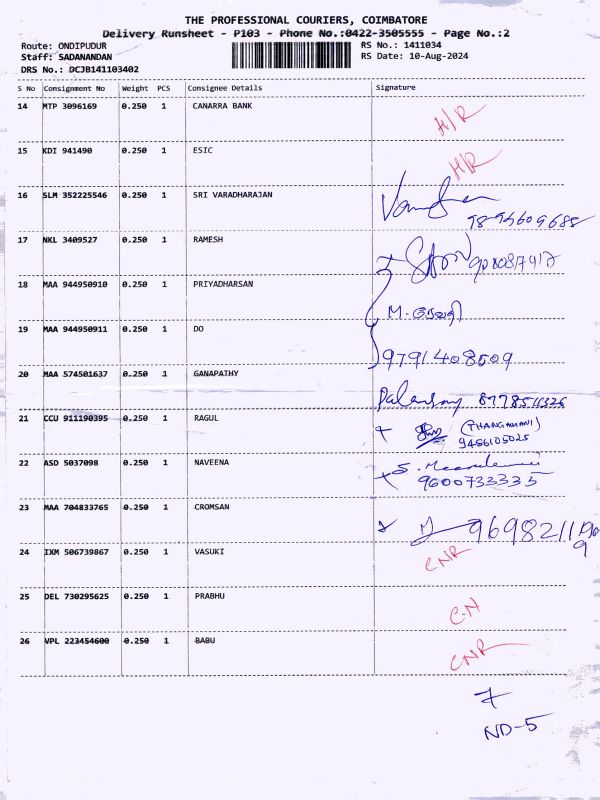 THE PROFESSIONAL COURIERS, COIMBATORE
Delivery Runsheet - P103 - Phone No.:0422-3505555 - Page No.:2
Route: ONDIPUDUR RS No.: 1411034
Staff: SADANANDAN RS Date: 10-Aug-2024
DRS No.: DCJB141103402
S No Consignment No Weight PCS Consignee Details Signature
14 MTP 3096169 0.250 1 CANARRA BANK H/R
15 KDI 941490 0.250 1 ESIC H/R
16 SLM 352225546 0.250 1 SRI VARADHARAJAN
17 NKL 3409527 0.250 1 RAMESH
18 MAA 944950910 0.250 1 PRIYADHARSAN M.
19 MAA 944950911 0.250 1 DO 9791408509
20 MAA 574501637 0.250 1 GANAPATHY
21 CCU 911190395 0.250 1 RAGUL
9486105025
22 ASD 5037098 0.250 1 NAVEENA S.
9600733335
23 MAA 704833765 0.250 1 CROMSAN
24 IXM 506739867 0.250 1 VASUKI CNR
25 DEL 730295625 0.250 1 PRABHU C-N
26 VPL 223454600 0.250 1 BABU CNR
7
ND-5